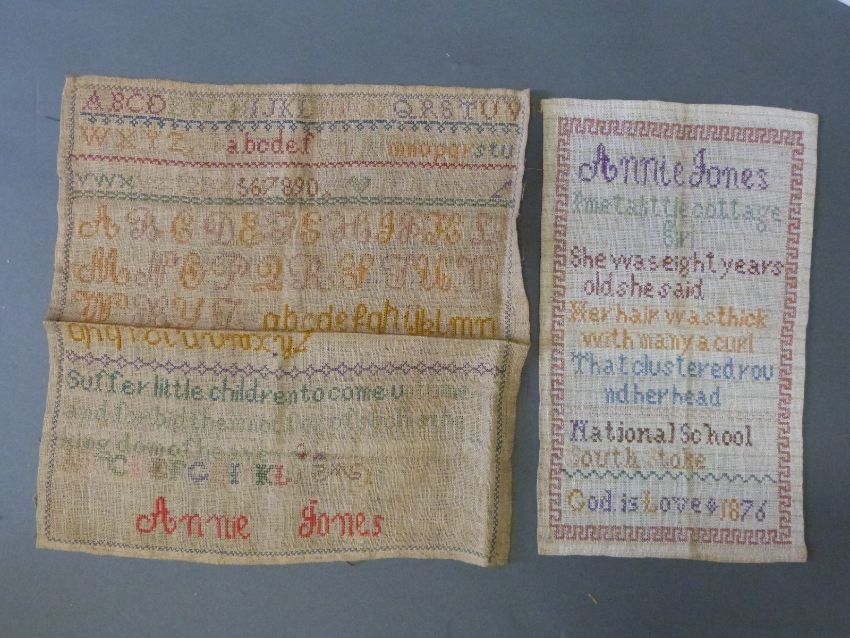 ABCD IJKL QRSTUV
WXYZ abcdef mnopqrstu
vwx 567890
A B C D E F G H I J K L
M N O P Q R S T U V
W X Y Z abcdefghijklmn
opqrstuvwxyz
Suffer little children to come unto me
and forbid them not for of such is the
king dom of heaven
C EFG I KL
Annie Jones
Annie Jones
I met a little cottage
Girl
She was eight years
old she said
Her hair was thick
with many a curl
That clustered rou
nd her head
National School
South Stoke
God is Love 1876